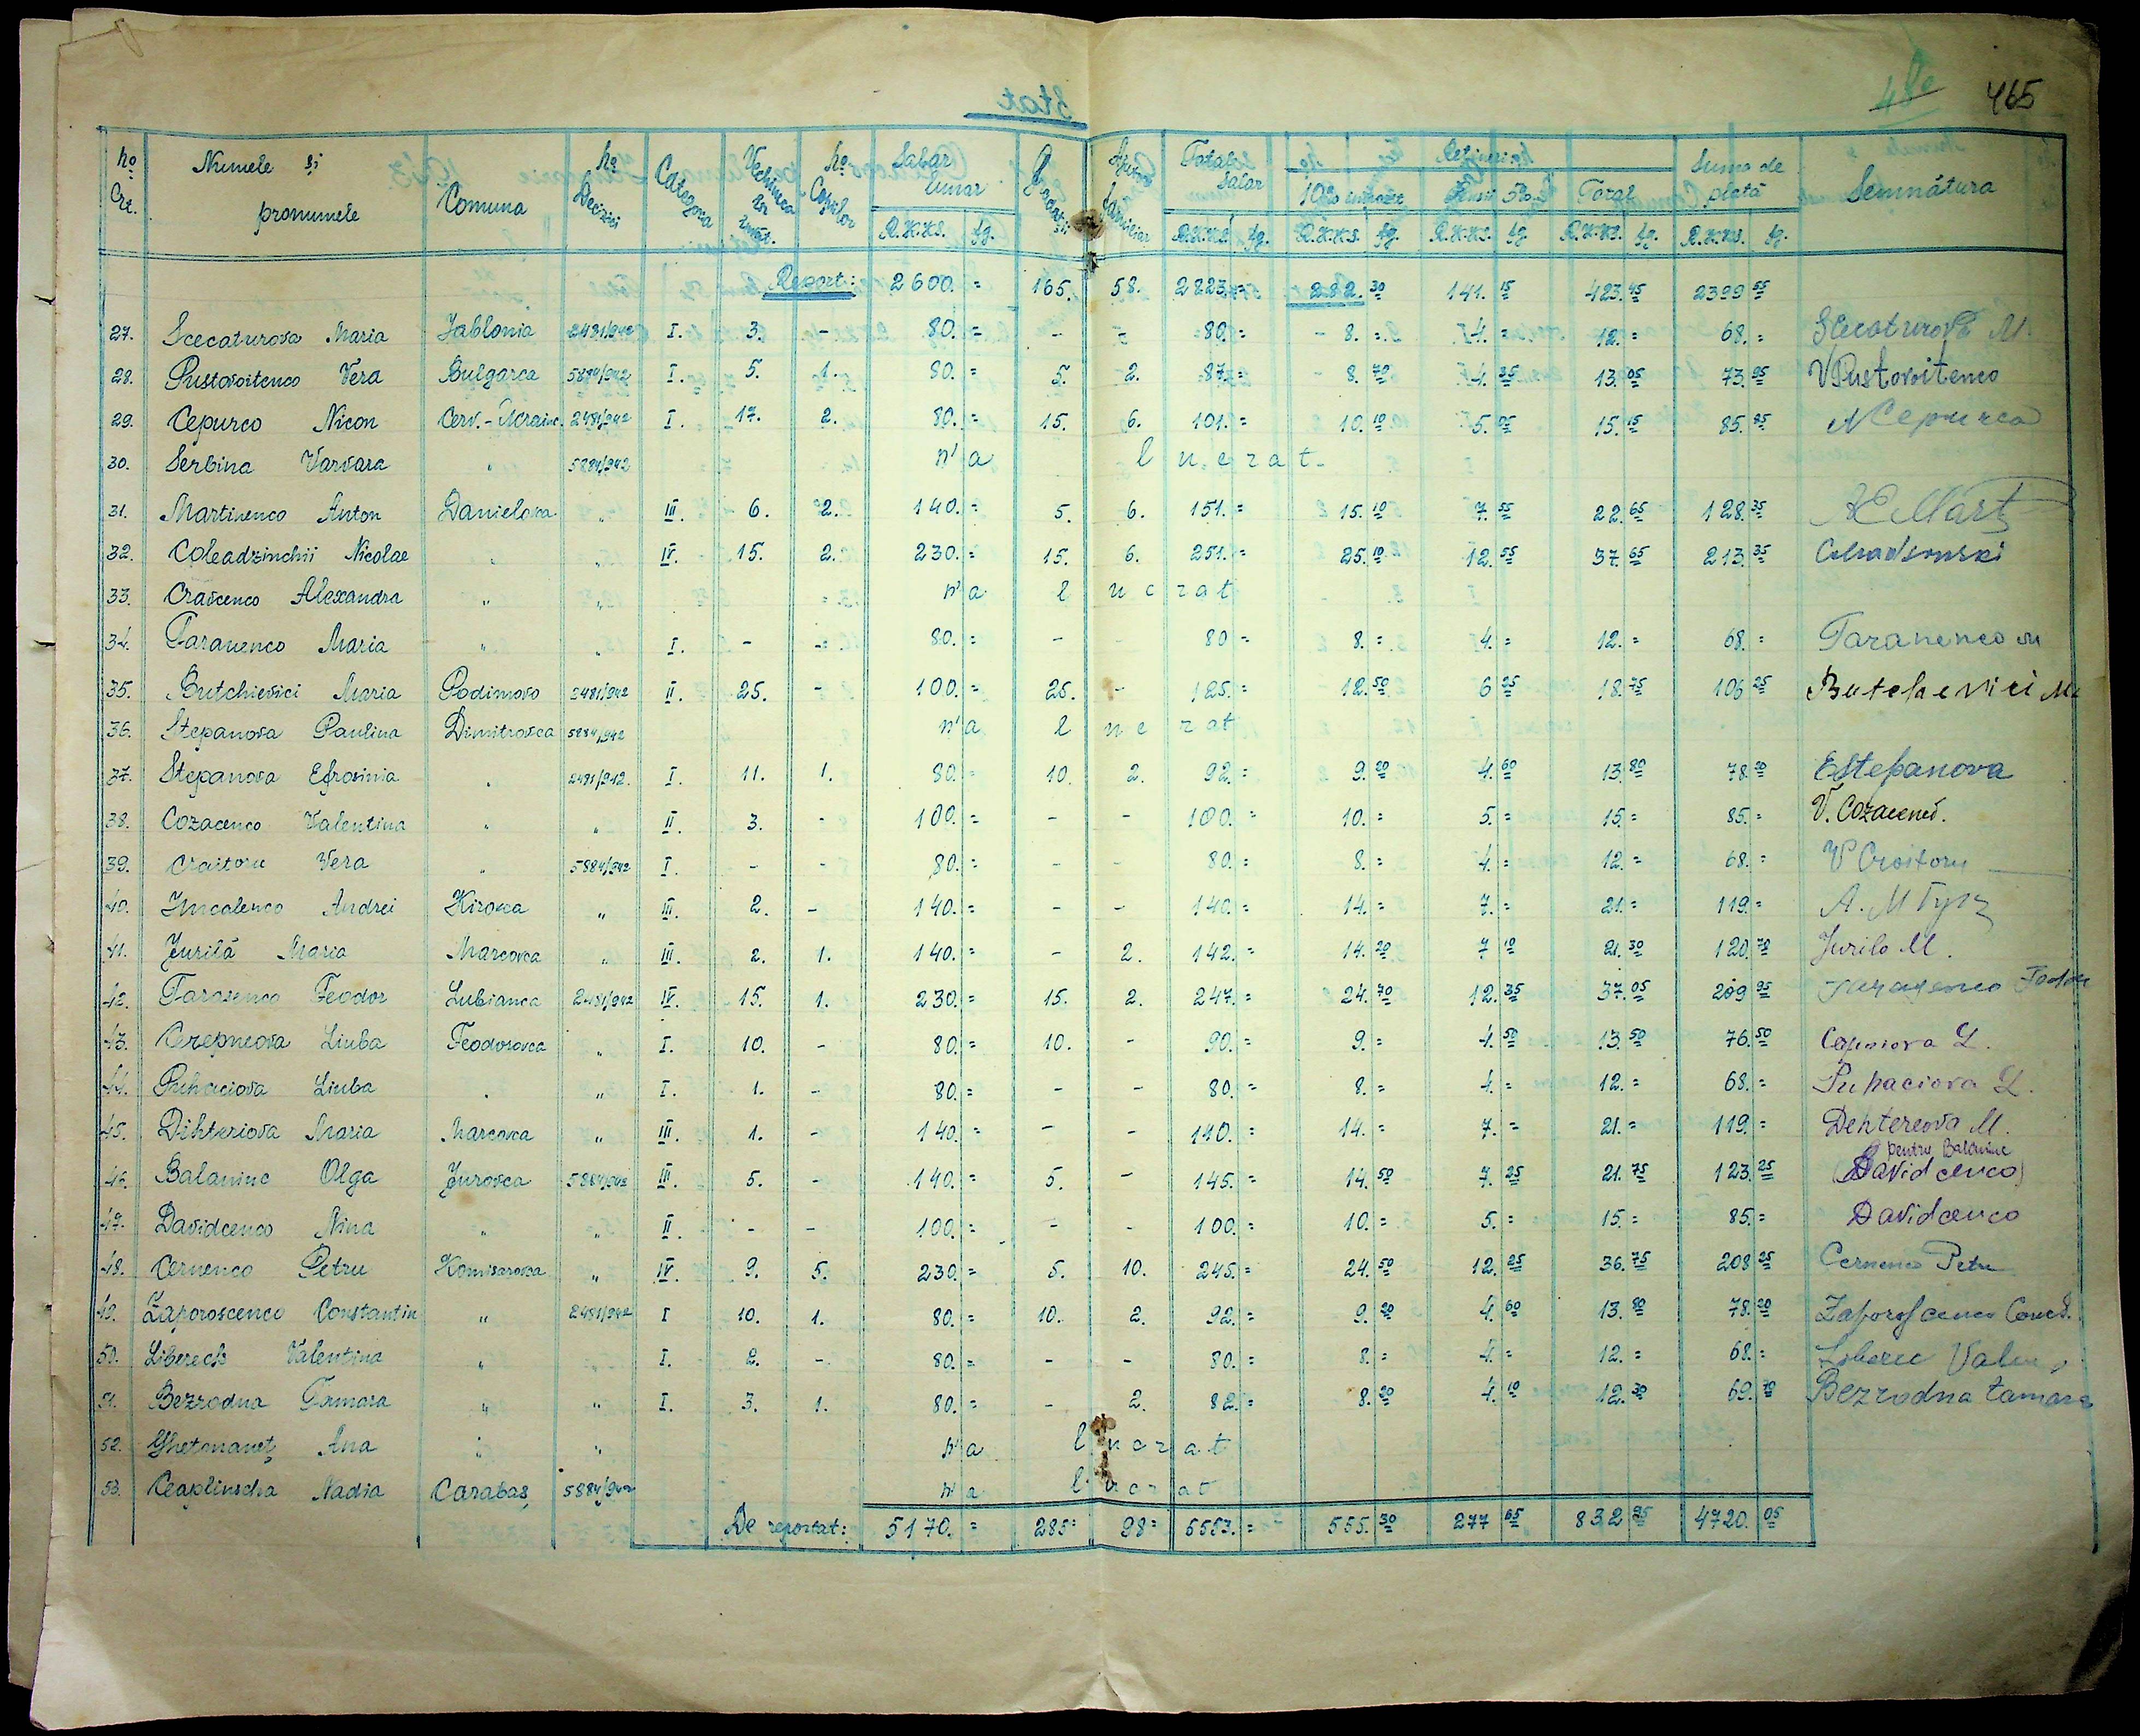 465
Stat
No Crt. Numele și pronumele Comuna No Decizii Categoria Vechimea în învăț. No Copiilor Salar lunar Gradații Ajutor familiar Total salar Rețineri Suma de plată Semnătura
10% impozit Pensii 5% Total
R.K.KS. fg. R.K.KS. fg. R.K.KS. fg. R.K.KS. fg. R.K.KS. fg. R.K.KS. fg.
Report: 2600. = 165. 58. 2823. = 282. 30 141. 15 423. 45 2399 55
27. Scecaturova Maria Jablonia 2481/942 I. 3. - 80. = - = 80. = 8. = 4. = 12. = 68. = Scecaturova M.
28. Pustovoitenco Vera Bulgarca 5884/942 I. 5. 1. 80. = 5. 2. 87. = 8. 70 4. 35 13. 05 73. 95 V Pustovoitenco
29. Cepurco Nicon Cerv.-Ucrainc. 2481/942 I. 17. 2. 80. = 15. 6. 101. = 10. 10 5. 05 15. 15 85. 85 N Cepurco
30. Serbina Varvara " 5884/942 n'a lucrat.
31. Martinenco Anton Danielovca " III. 6. 2. 140. = 5. 6. 151. = 15. 10 7. 55 22. 65 128. 35 Mart
32. Coleadzinchii Nicolae " " IV. 15. 2. 230. = 15. 6. 251. = 25. 10 12. 55 37. 65 213. 35
33. Cravcenco Alexandra " " n'a lucrat
34. Taranenco Maria " " I. - - 80. = - - 80 = 8. = 4. = 12. = 68. = Taranenco M
35. Butchievici Maria Podimovo 2481/942 II. 25. - 100. = 25. - 125. = 12. 50 6 25 18. 75 106 25 Butchevici M
36. Stepanova Paulina Dimitrovca 5884/942 n'a lucrat
37. Stepanova Efrosinia " 2481/942. I. 11. 1. 80. = 10. 2. 92. = 9. 20 4. 60 13. 80 78. 20 EStepanova
38. Cozacenco Valentina " " II. 3. - 100. = - - 100. = 10. = 5. = 15. = 85. = V. Cozacenco.
39. Craitoru Vera " 5884/942 I. - - 80. = - - 80. = 8. = 4. = 12. = 68. = V Croitoru
40. Jmcalenco Andrei Kirovca " III. 2. - 140. = - - 140. = 14. = 7. = 21. = 119. =
41. Jurilă Maria Marcovca " III. 2. 1. 140. = - 2. 142. = 14. 20 7 10 21. 30 120. 70 Jurilo M.
42. Tarasenco Feodor Lubianca 2481/942 IV. 15. 1. 230. = 15. 2. 247. = 24. 70 12. 35 37. 05 209 95
43. Cerepneova Liuba Feodorovca " I. 10. - 80. = 10. - 90. = 9. = 4. 50 13. 50 76. 50
44. Puhaciova Liuba " " I. 1. - 80. = - - 80. = 8. = 4. = 12. = 68. = Puhaciova L.
45. Dihteriova Maria Marcovca " III. 1. - 140. = - - 140. = 14. = 7. = 21. = 119. = Dehtereova M.
46. Balaninc Olga Jurovca 5884/942 III. 5. - 140. = 5. - 145. = 14. 50 7. 25 21. 75 123. 25 pentru Balaninc (Davidcenco)
47. Davidcenco Nina " " II. - - 100. = - - 100. = 10. = 5. = 15. = 85. = Davidcenco
48. Cernenco Petru Komisarovca " IV. 9. 5. 230. = 5. 10. 245. = 24. 50 12. 25 36. 75 208 25 Cernenco Petru
49. Zaporoscenco Constantin " 2481/942 I 10. 1. 80. = 10. 2. 92. = 9. 20 4. 60 13. 80 78. 20 Zaporoscenco Const.
50. Liberech Valentina " " I. 2. - 80. = - - 80. = 8. = 4. = 12. = 68. =
51. Bezrodna Tamara " " I. 3. 1. 80. = - 2. 82. = 8. 20 4. 10 12. 30 69. 70 Bezrodna tamara
52. Ghetmaneț Ana " " n'a lucrat
53. Ceaplinscha Nadia Carabaș 5884/942 n'a lucrat
De reportat: 5170. = 285 = 98 = 5553. = 555. 30 277 65 832 95 4720. 05